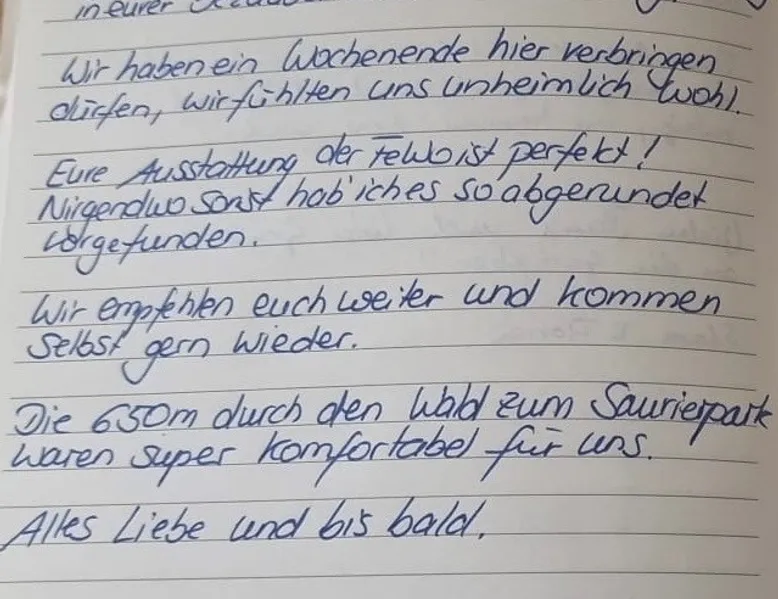 in eurer
Wir haben ein Wochenende hier verbringen
dürfen, wir fühlten uns unheimlich wohl.
Eure Ausstattung der FeWo ist perfekt!
Nirgendwo sonst hab' ich es so abgerundet
vorgefunden.
Wir empfehlen euch weiter und kommen
selbst gern wieder.
Die 650m durch den Wald zum Saurierpark
waren super komfortabel für uns.
Alles Liebe und bis bald.